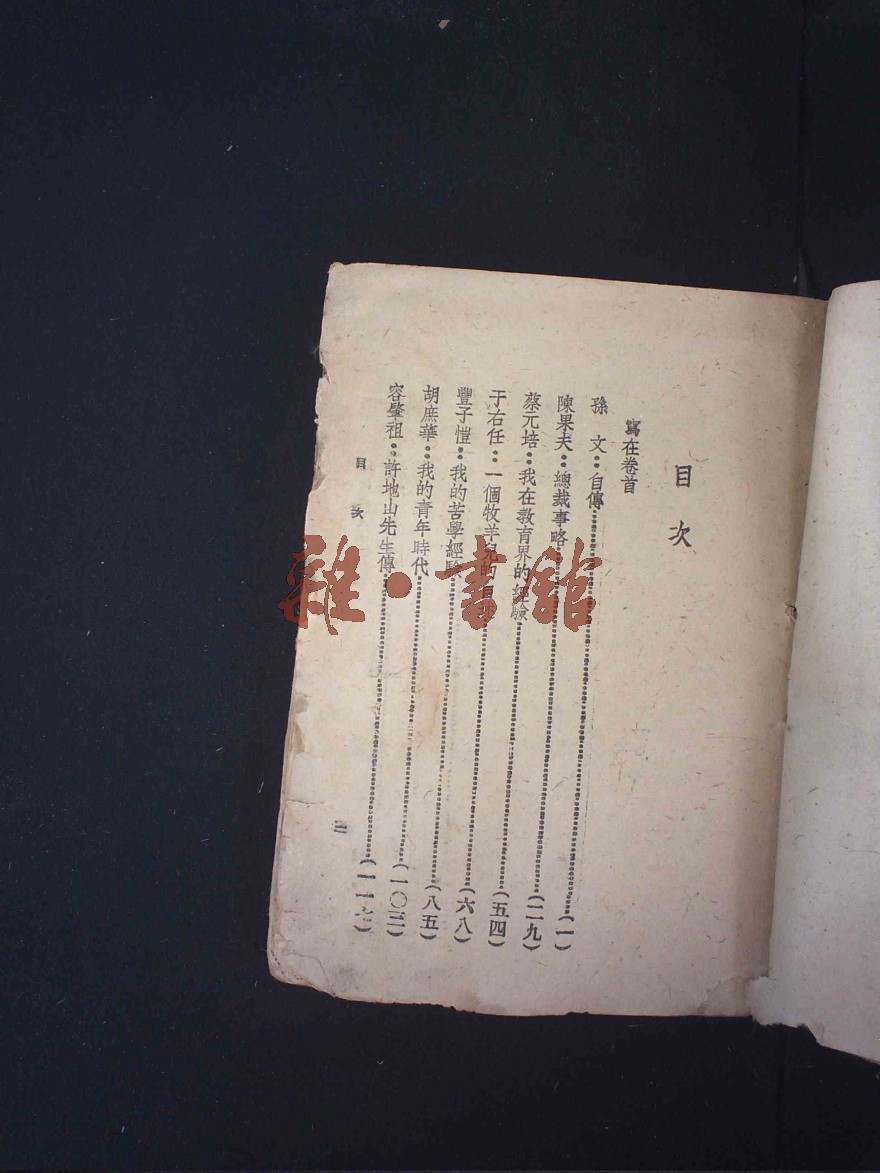 目次
寫在卷首
孫文：自傳……（一）
陳果夫：總裁事略……（二九）
蔡元培：我在教育界的經驗……（五四）
于右任：一個牧羊兒的自述……（六八）
豐子愷：我的苦學經驗……（八五）
胡庶華：我的青年時代……（一〇三）
容肇祖：許地山先生傳……（一一
目次
雜·書館